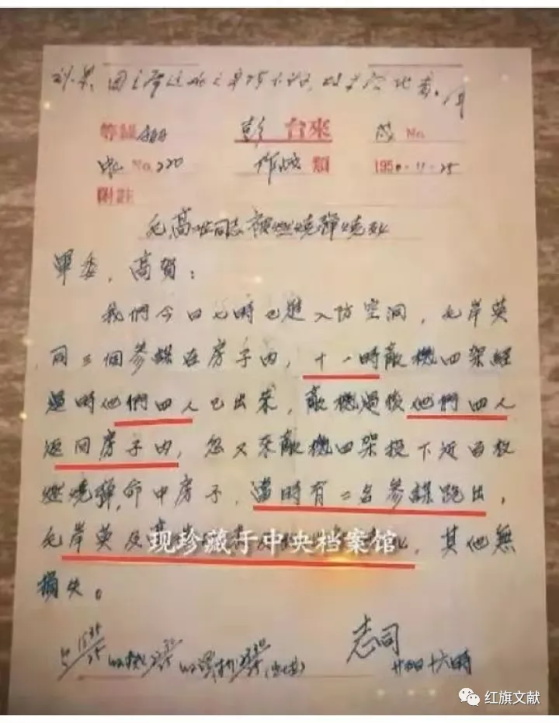 等級 彭 台來 No.
No. 220 作战 類 1950-11-25
附註
被燃燒彈燒死
軍委,高賀:
我們今日七時已進入防空洞,毛岸英
同三個參謀在房子内,十一時敵機四架經
過時他們四人已出來,敵機過後他們四人
返回房子内,忽又來敵機四架投下近百枚
燃燒彈,命中房子,當時有二名參謀跑出,
毛岸英及高 其他無
现珍藏于中央档案馆
損失。
志司
十六時
红旗文献